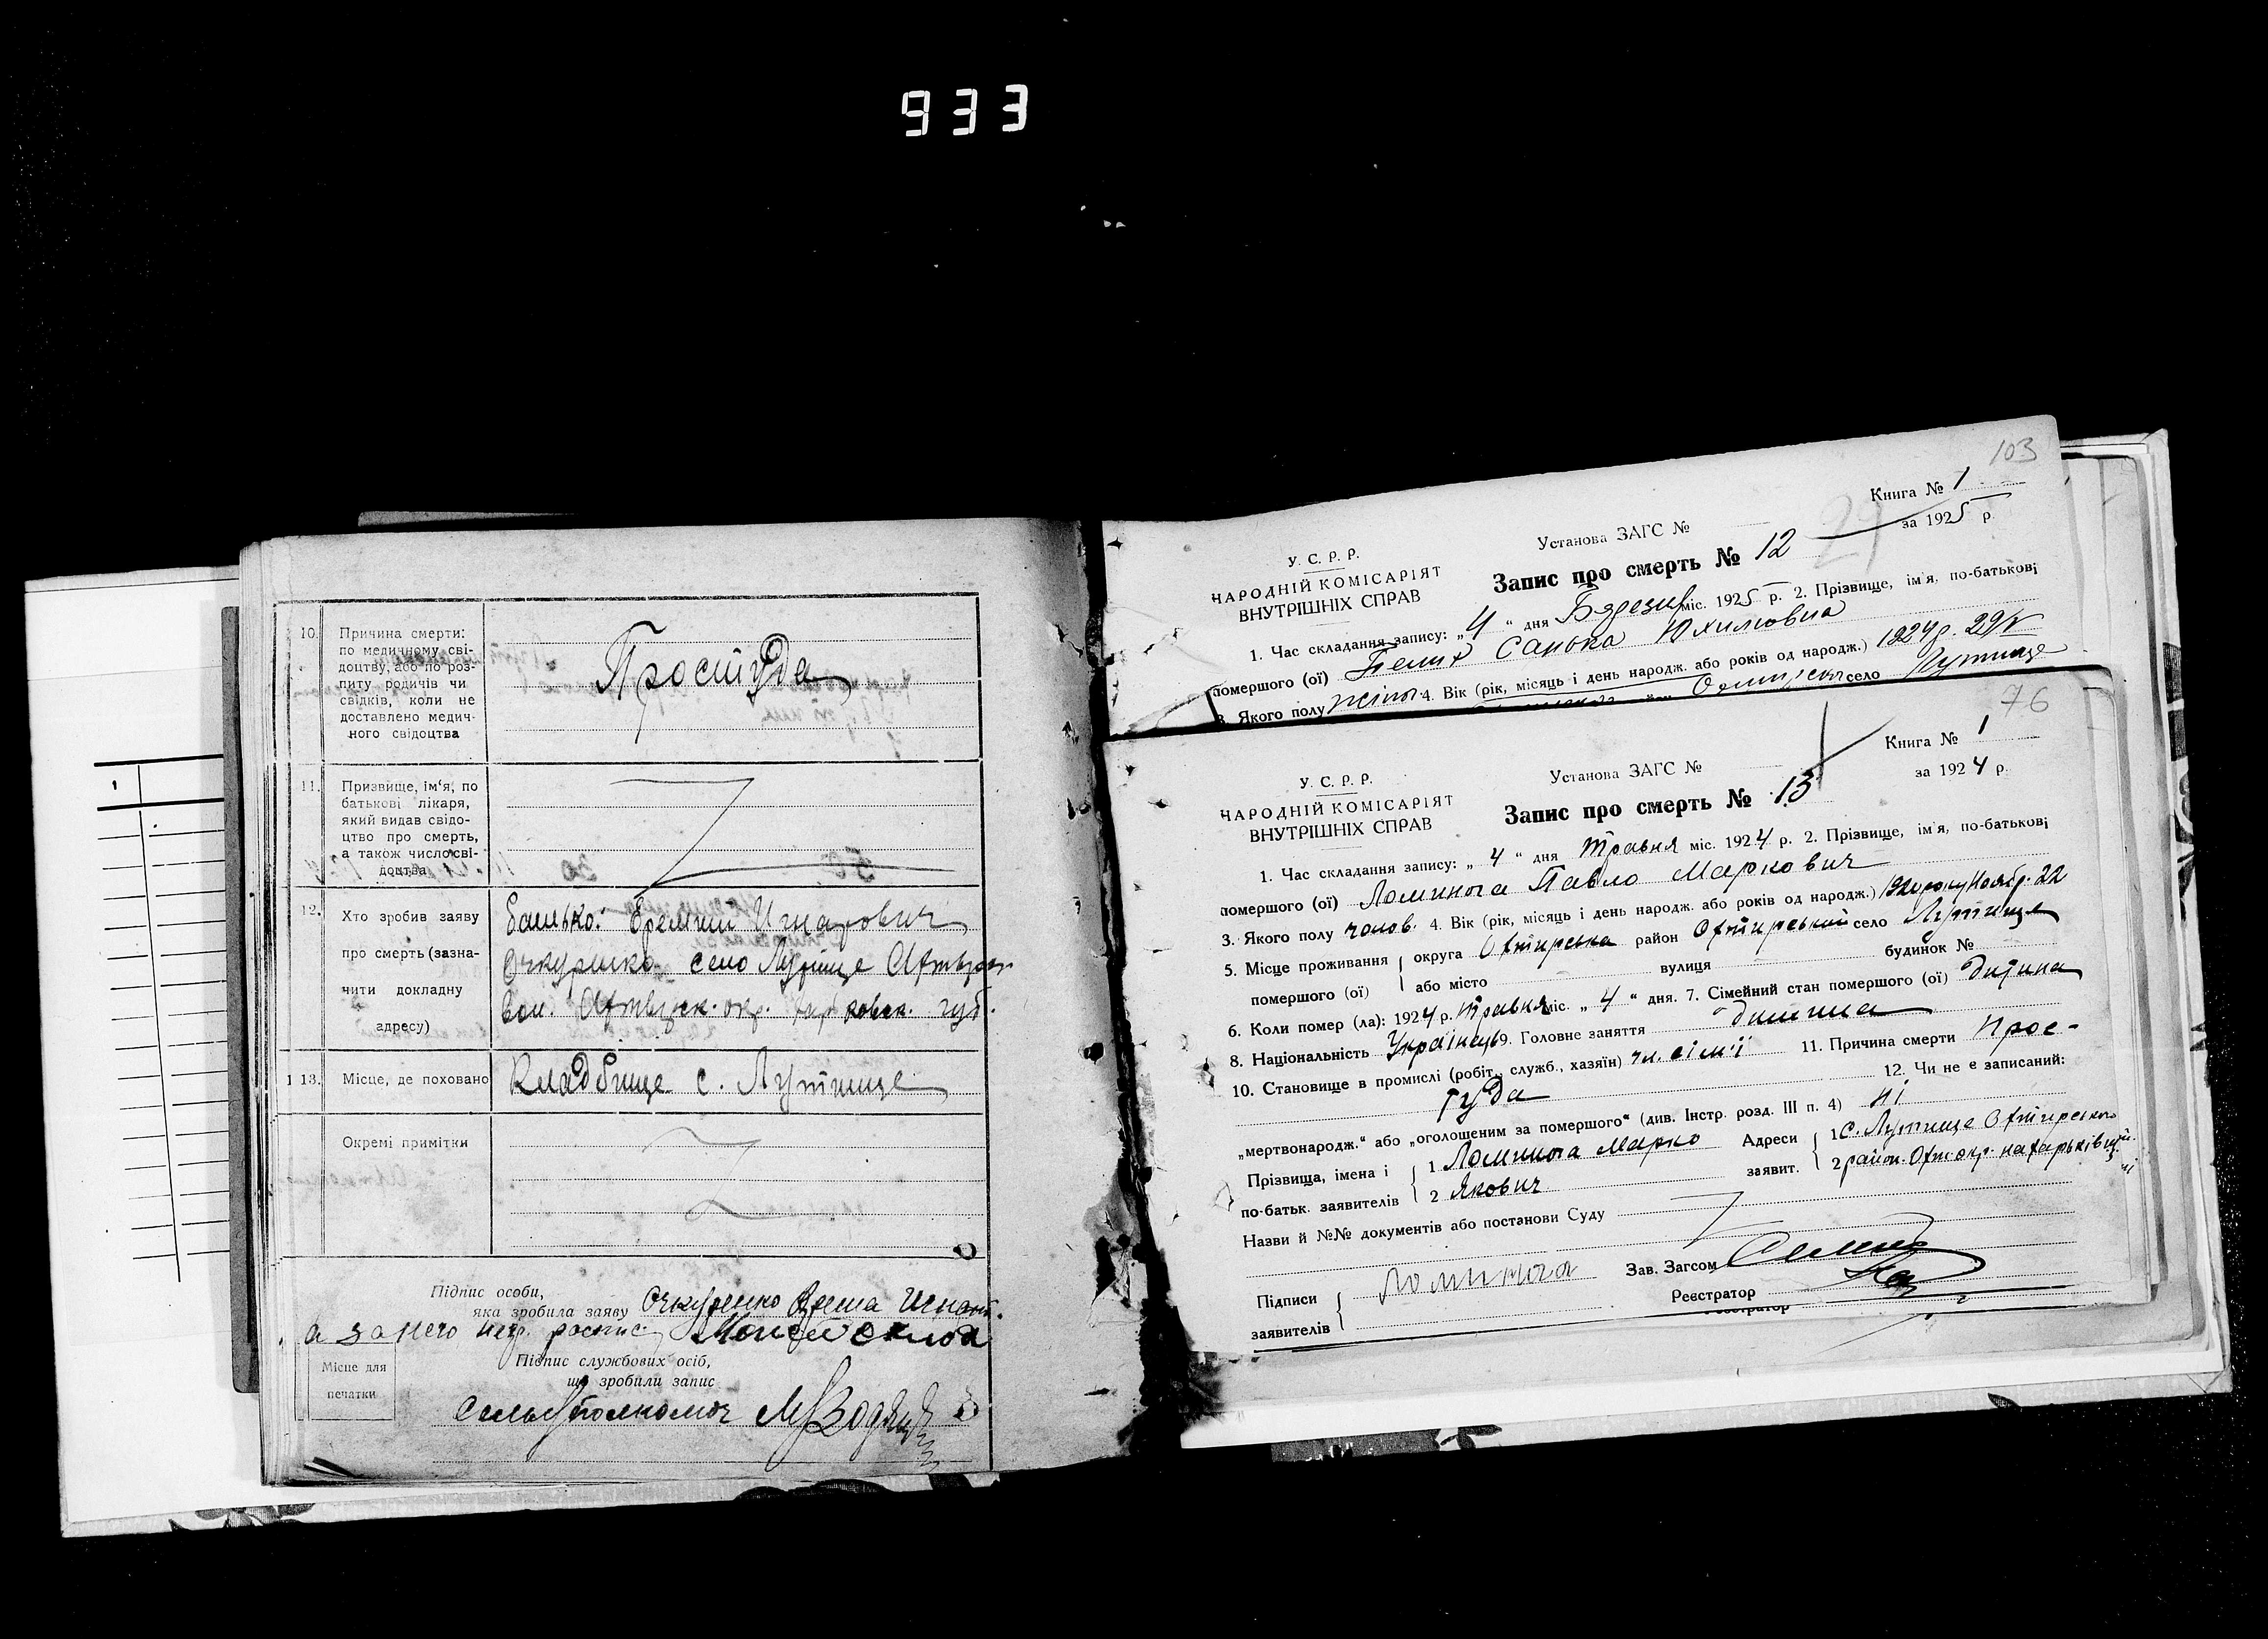 933
10. Причина смерти:
по медичному сві-
доцтву, або по роз-
питу родичів чи
свідків, коли не
доставлено медич-
ного свідоцтва
Простуда
11. Призвище, ім'я, по
батькові лікаря,
який видав свідо-
цтво про смерть,
а також число сві-
доцтва
12. Хто зробив заяву
про смерть (зазна-
чити докладну
адресу)
Батько:
село
губ.
13. Місце, де поховано
Кладбище с. Лутище
Окремі примітки
Підпис особи,
яка зробила заяву Очкуренко
а за него негр.
Місце для
печатки
Підпис службових осіб,
що зробили запис
103
Книга № 1
за 1925 р.
У. С. Р. Р.
НАРОДНІЙ КОМІСАРІЯТ
ВНУТРІШНІХ СПРАВ
Установа ЗАГС №
Запис про смерть № 12
1. Час складання запису: „4“ дня міс. 1925 р. 2. Прізвище, ім'я, по-батькові
помершого (ої) Юхимовна
3. Якого полу 4. Вік (рік, місяць і день народж. або років од народж.) 1924 р.
село Лутище
76
Книга № 1
за 1924 р.
У. С. Р. Р.
НАРОДНІЙ КОМІСАРІЯТ
ВНУТРІШНІХ СПРАВ
Установа ЗАГС №
Запис про смерть № 13
1. Час складання запису: „4“ дня Травня міс. 1924 р. 2. Прізвище, ім'я, по-батькові
помершого (ої) Ломинога Павло Маркович
3. Якого полу чолов. 4. Вік (рік, місяць і день народж. або років од народж.) 22
5. Місце проживання
помершого (ої)
округа Охтирська район Охтирський село Лутище
або місто вулиця будинок №
6. Коли помер (ла): 1924 р. Травня міс. „4“ дня. 7. Сімейний стан помершого (ої) дитина
8. Національність Українець 9. Головне заняття дитина
10. Становище в промислі (робіт., служб., хазяїн) чл. сім'ї 11. Причина смерти Прос-
туда 12. Чи не є записаний:
„мертвонародж.“ або „оголошеним за помершого“ (див. Інстр. розд. III п. 4) ні
Прізвища, імена і
по-батьк. заявителів
1 Ломинога Марко
2 Якович
Адреси
заявит.
1 с. Лутище Охтирського
2 район. Охт. окр. на Харьківщині
Назви й №№ документів або постанови Суду
Підписи
заявителів
Ломинога
Зав. Загсом
Реєстратор